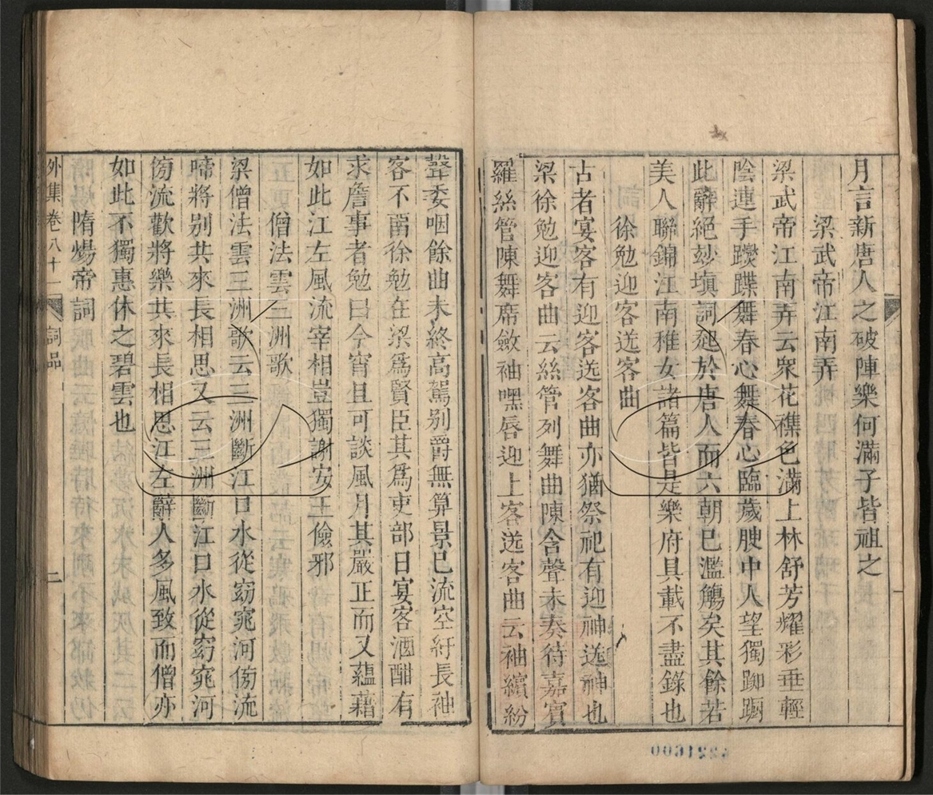 月言新唐人之破陣樂何滿子皆祖之
梁武帝江南弄
梁武帝江南弄云衆花襍色滿上林舒芳耀彩垂輕
陰連手躞蹀舞春心舞春心臨歲腴中人望獨踟蹰
此辭絕妙塡詞起於唐人而六朝已濫觴矣其餘若
美人聯錦江南稚女諸篇皆是樂府具載不盡錄也
徐勉迎客送客曲
古者宴客有迎客送客曲亦猶祭祀有迎神送神也
梁徐勉迎客曲云絲管列舞曲陳含聲未奏待嘉賓
羅絲管陳舞席斂袖嘿唇迎上客送客曲云袖繽紛
聲委咽餘曲未終高駕别爵無算景已流空紆長袖
客不畱徐勉在梁爲賢臣其爲吏部日宴客酒酣有
求詹事者勉曰今宵且可談風月其嚴正而又蘊藉
如此江左風流宰相豈獨謝安王儉邪
僧法雲三洲歌
梁僧法雲三洲歌云三洲斷江口水從窈窕河傍流
啼將别共來長相思又云三洲斷江口水從窈窕河
傍流歡將樂共來長相思江左辭人多風致而僧亦
如此不獨惠休之碧雲也
隋煬帝詞
外集卷八十一 詞品 二